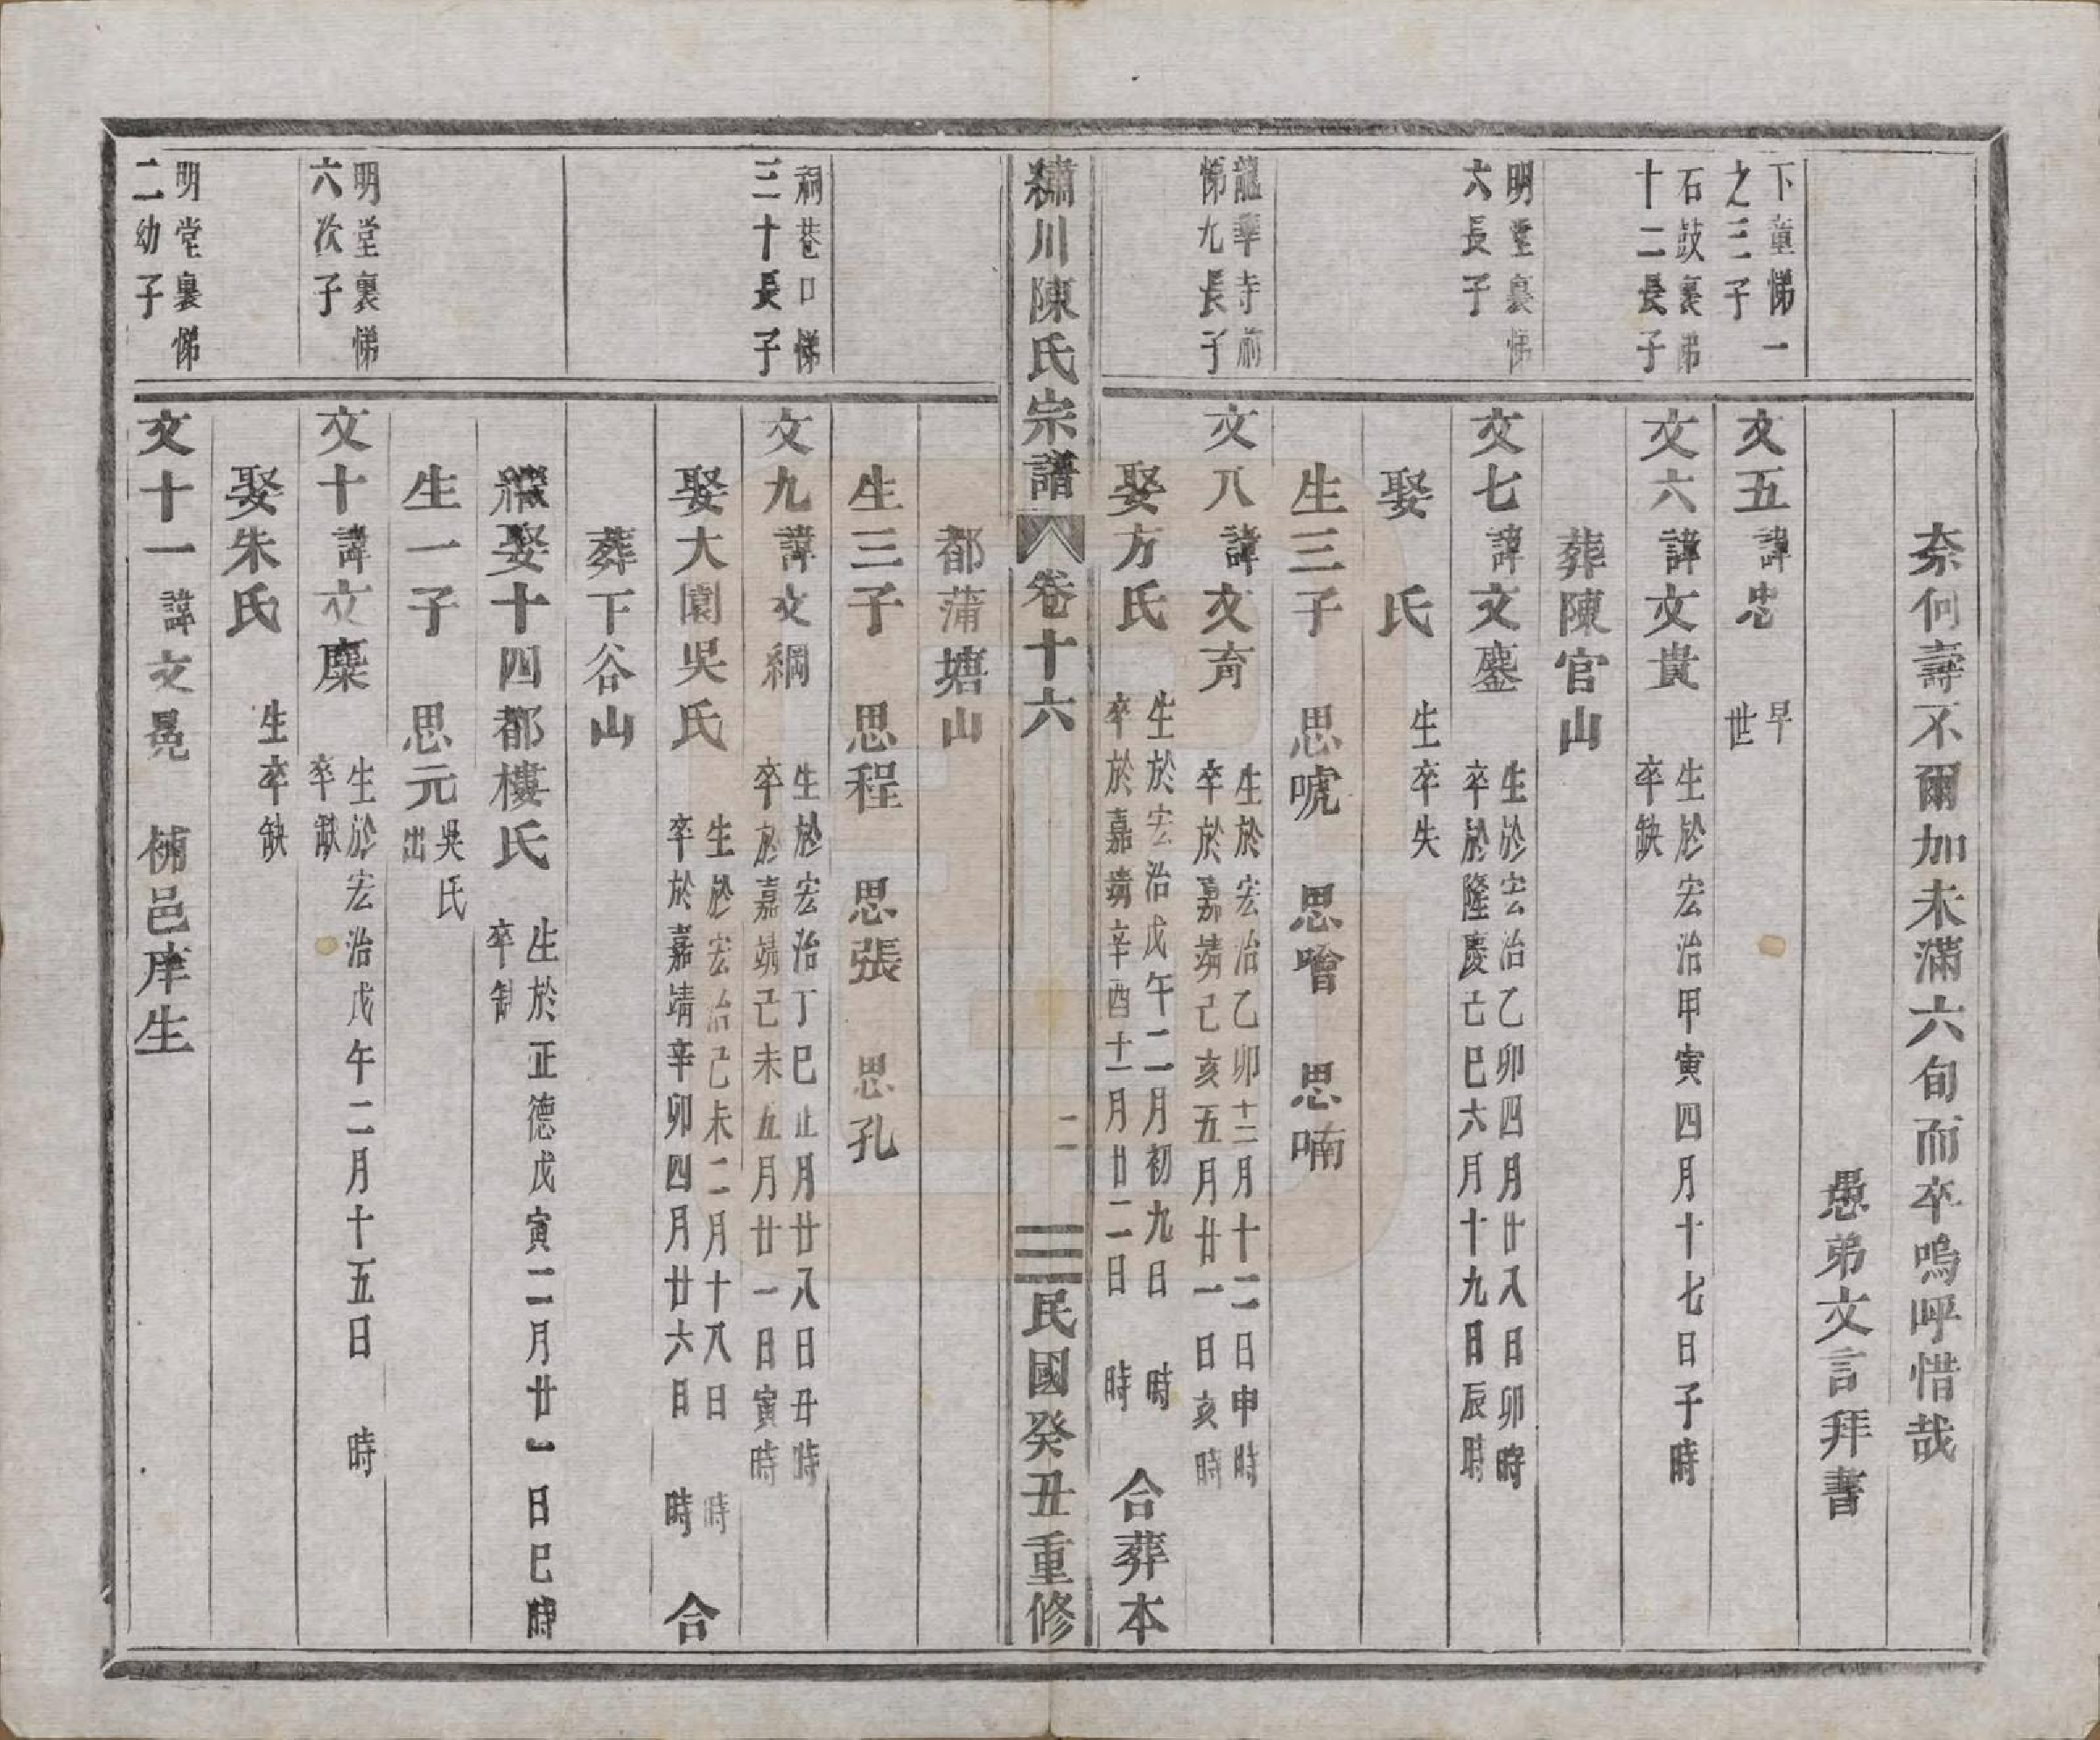 奈何壽不爾加未滿六旬而卒嗚呼惜哉
愚弟文言拜書
下童悌一
之三子
文五諱忠
早
世
石鼓裏悌
十二長子
文六諱文貴
生於宏治甲寅四月十七日子時
卒缺
葬陳官山
明堂裏悌
六長子
文七諱文鏖
生於宏治乙卯四月廿八日卯時
卒於隆慶己巳六月十九日辰時
娶 氏
生卒失
生三子 思唬 思噲 思喃
龍華寺前
悌九長子
文八諱文育
生於宏治乙卯十二月十二日申時
卒於嘉靖己亥五月廿一日亥時
娶方氏
生於宏治戊午二月初九日 時
卒於嘉靖辛酉十一月廿二日 時
合葬本
繡川陳氏宗譜 卷十六 二 民國癸丑重修
都蒲塘山
生三子 思程 思張 思孔
祠巷口悌
三十長子
文九諱文綱
生於宏治丁巳正月廿八日丑時
卒於嘉靖己未五月廿一日寅時
娶大園吳氏
生於宏治己未二月十八日 時
卒於嘉靖辛卯四月廿六日 時
合
葬下谷山
繼娶十四都樓氏
生於正德戊寅二月廿一日巳時
卒缺
生一子 思元
吳氏
出
明堂裏悌
六次子
文十諱文麋
生於宏治戊午二月十五日 時
卒缺
娶朱氏
生卒缺
明堂裏悌
二幼子
文十一諱文冕 補邑庠生